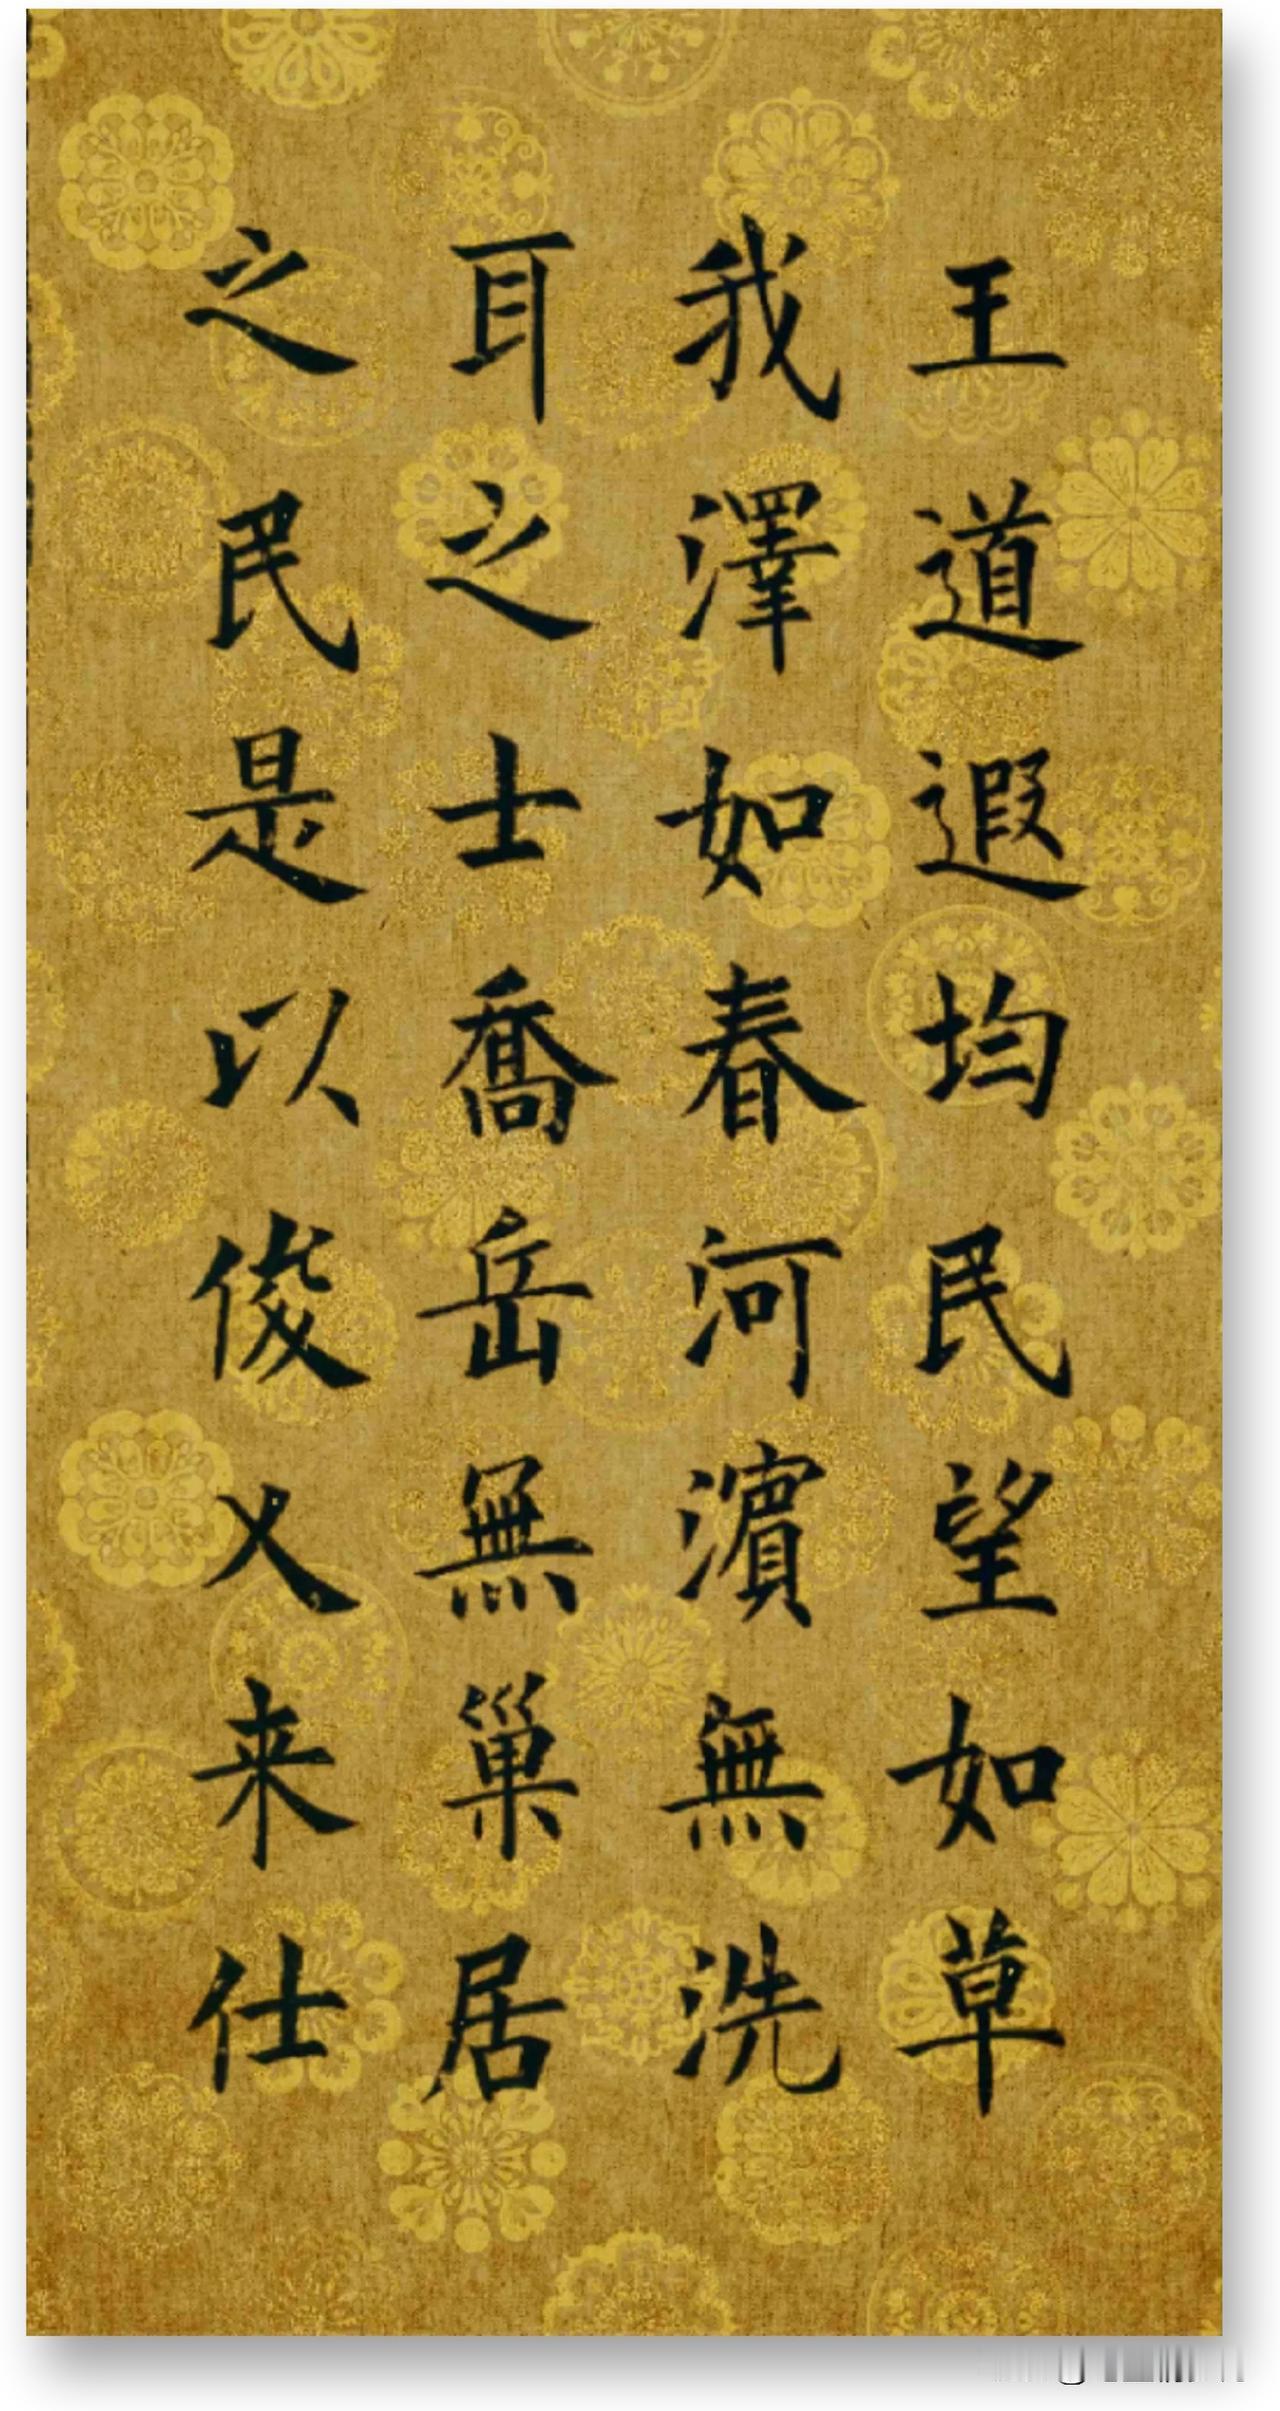 王道遐均民望如草
我澤如春河濵無洗
耳之士喬岳無巢居
之民是以俊乂来仕